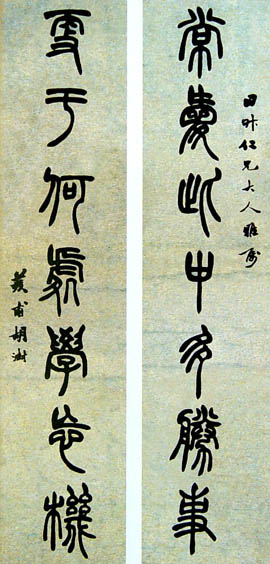 仁兄大人雅屬
常愛此中多勝事
更于何處學忘機
荄甫胡澍